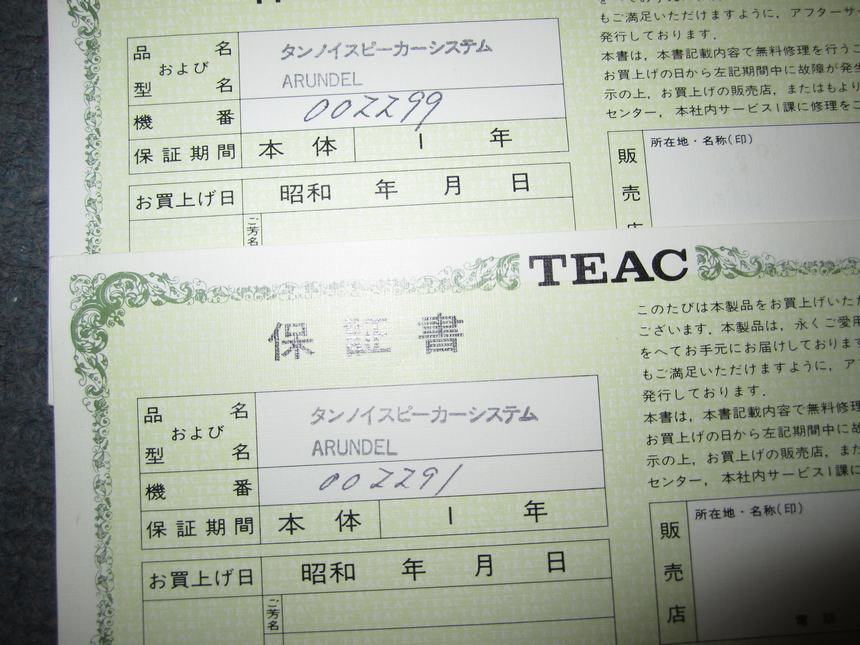 品名
および
型名
タンノイスピーカーシステム
ARUNDEL
機番 002299
保証期間 本体 1年
お買上げ日 昭和 年 月 日
ご芳名
もご満足いただけますように，アフターサ
発行しております．
本書は，本書記載内容で無料修理を行うこ
お買上げの日から左記期間中に故障が発生
示の上，お買上げの販売店，またはもより
センター，本社内サービス1課に修理をご
販売店
所在地・名称(印)
TEAC
保証書
品名
および
型名
タンノイスピーカーシステム
ARUNDEL
機番 002291
保証期間 本体 1年
お買上げ日 昭和 年 月 日
ご芳名
このたびは本製品をお買上げいただ
ございます．本製品は，永くご愛用
をへてお手元にお届けしております
もご満足いただけますように，ア
発行しております．
本書は，本書記載内容で無料修理
お買上げの日から左記期間中に故
示の上，お買上げの販売店，また
センター，本社内サービス1課に
販売店
所在地・名称(印)
電話